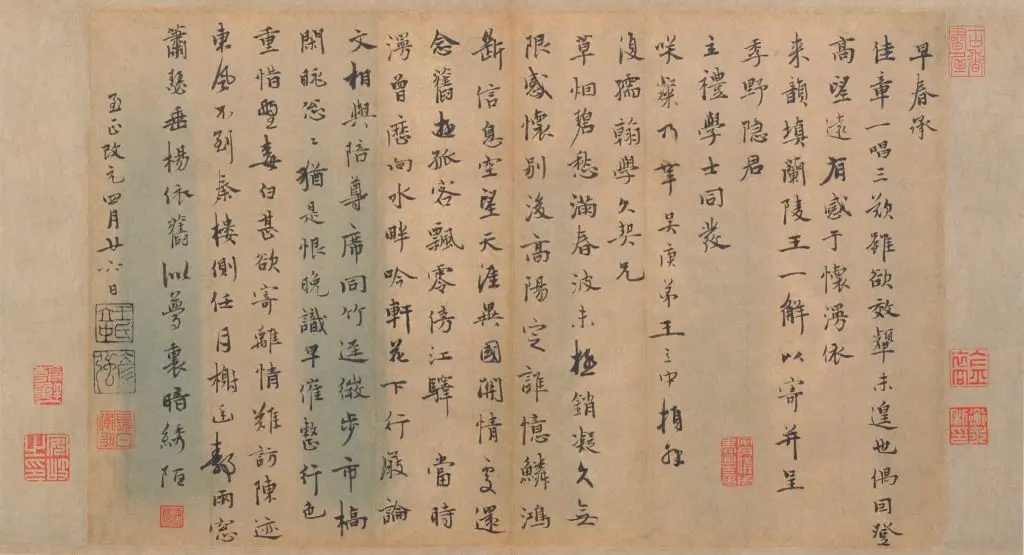 早春承
佳章一唱三歎雖欲效顰未遑也偶因登
高望遠有感于懷漫依
来韻填蘭陵王一解以寄并呈
季野隐君
主禮學士同發
咲粲乃幸吴庚弟王立中頓
復孺翰學久契兄
草烟碧愁滿春波未極銷凝久無
限感懷别後高陽定誰憶鱗鴻
斷信息空望天涯異國關情處還
念舊遊孤客飄零傍江驛當時
漫曾歷向水畔吟軒花下行廚論
文相與陪尊席同竹逕微步市橋
閑眺忽忽猶是恨晚識早催整行色
重惜鬢毛白甚欲寄離情難訪陳迹
東風不到秦樓側任月榭雨窓
蕭瑟垂楊依舊似夢裏暗綉陌
至正改元四月廿六日
王氏彦强